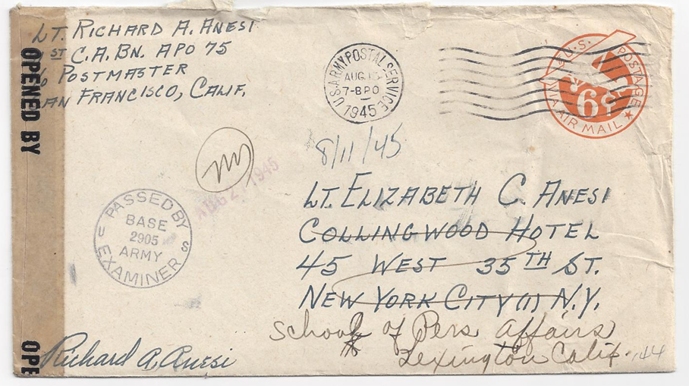 LT. RICHARD A. ANESI
ST C.A. BN. APO 75
% POSTMASTER
AN FRANCISCO, CALIF.
OPENED BY
U.S. ARMY POSTAL SERVICE
AUG
7-B P O
1945
U.S. POSTAGE
6¢
VIA AIR MAIL
8/11/45
1945
PASSED BY
BASE
2905
ARMY
EXAMINER
S
LT. ELIZABETH C. ANESI
COLLINGWOOD HOTEL
45 WEST 35TH ST.
NEW YORK CITY (1) N.Y.
School of Pers Affairs
Lexington Calif.
Richard A. Anesi
OPE